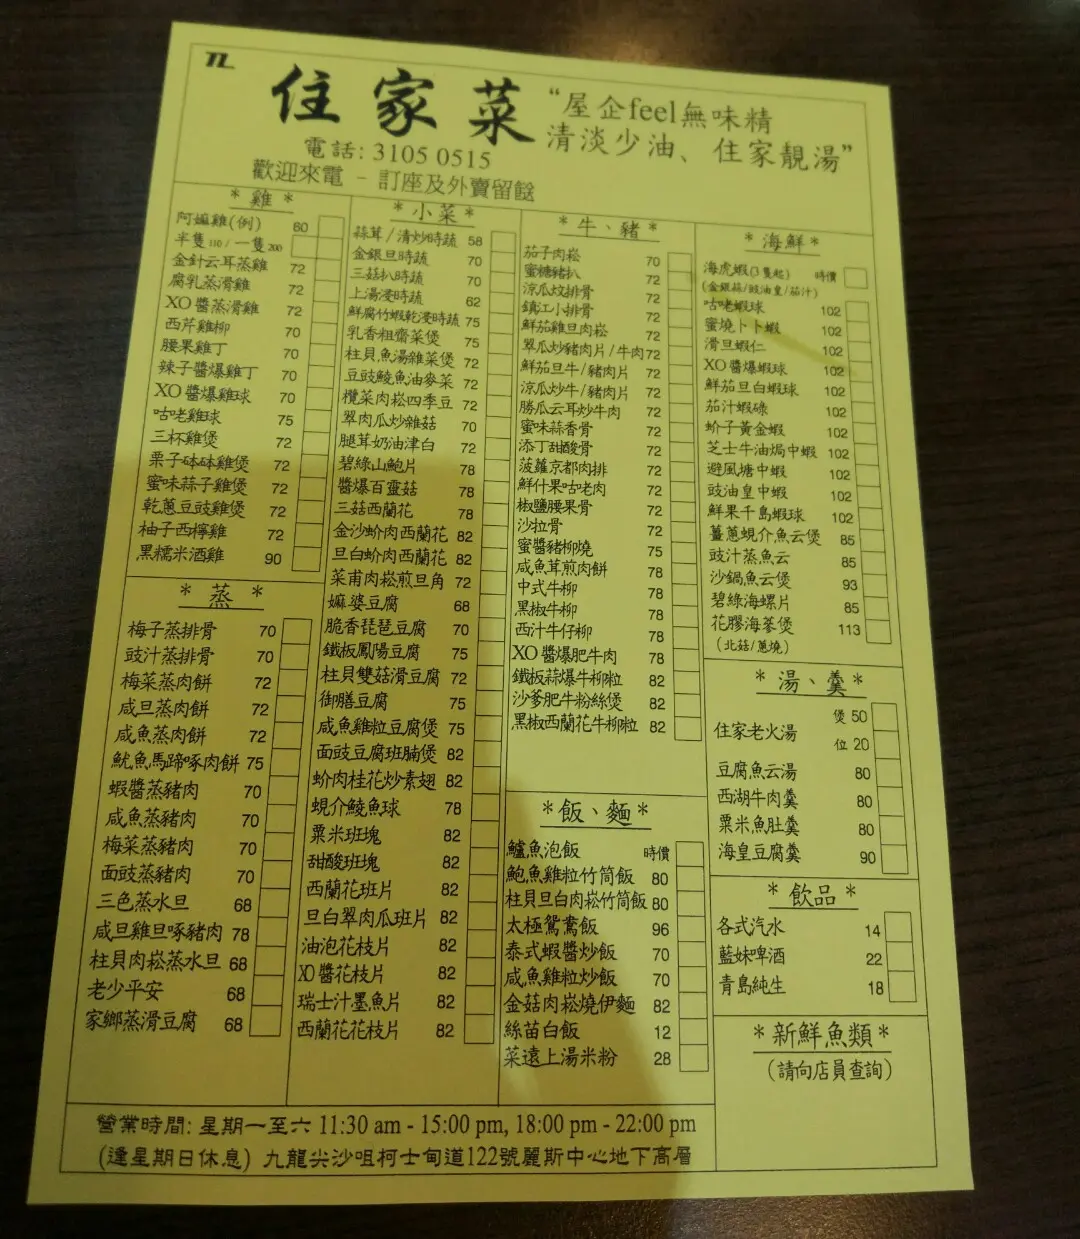 住家菜
“屋企feel無味精
清淡少油、住家靚湯”
電話: 3105 0515
歡迎來電 - 訂座及外賣留餸
* 雞 *
阿嫲雞(例) 80
半隻 110 / 一隻 200
金針云耳蒸雞 72
腐乳蒸滑雞 72
XO 醬蒸滑雞 72
西芹雞柳 70
腰果雞丁 70
辣子醬爆雞丁 70
XO 醬爆雞球 70
咕咾雞球 75
三杯雞煲 72
栗子砵砵雞煲 72
蜜味蒜子雞煲 72
乾蔥豆豉雞煲 72
柚子西檸雞 72
黑糯米酒雞 90
* 蒸 *
梅子蒸排骨 70
豉汁蒸排骨 70
梅菜蒸肉餅 72
咸旦蒸肉餅 72
咸魚蒸肉餅 72
魷魚馬蹄啄肉餅 75
蝦醬蒸豬肉 70
咸魚蒸豬肉 70
梅菜蒸豬肉 70
面豉蒸豬肉 70
三色蒸水旦 68
咸旦雞旦啄豬肉 78
柱貝肉崧蒸水旦 68
老少平安 68
家鄉蒸滑豆腐 68
* 小菜 *
蒜茸 / 清炒時蔬 58
金銀旦時蔬 70
三菇扒時蔬 70
上湯浸時蔬 62
鮮腐竹蝦乾浸時蔬 75
乳香粗齋菜煲 75
柱貝魚湯雜菜煲 72
豆豉鯪魚油麥菜 72
欖菜肉崧四季豆 72
翠肉瓜炒雜菇 70
腿茸奶油津白 72
碧綠山鮑片 78
醬爆百靈菇 78
三菇西蘭花 78
金沙蚧肉西蘭花 82
旦白蚧肉西蘭花 82
菜甫肉崧煎旦角 72
嫲婆豆腐 68
脆香琵琶豆腐 70
鐵板鳳陽豆腐 75
柱貝雙菇滑豆腐 72
御膳豆腐 75
咸魚雞粒豆腐煲 75
面豉豆腐班腩煲 82
蚧肉桂花炒素翅 82
蜆介鯪魚球 78
粟米班塊 82
甜酸班塊 82
西蘭花班片 82
旦白翠肉瓜班片 82
油泡花枝片 82
XO 醬花枝片 82
瑞士汁墨魚片 82
西蘭花花枝片 82
* 牛、豬 *
茄子肉崧 70
蜜糖豬扒 72
涼瓜炆排骨 72
鎮江小排骨 72
鮮茄雞旦肉崧 72
翠瓜炒豬肉片 / 牛肉 72
鮮茄旦牛 / 豬肉片 72
涼瓜炒牛 / 豬肉片 72
勝瓜云耳炒牛肉 72
蜜味蒜香骨 72
添丁甜酸骨 72
菠蘿京都肉排 72
鮮什果咕老肉 72
椒鹽腰果骨 72
沙拉骨 72
蜜醬豬柳燒 75
咸魚茸煎肉餅 78
中式牛柳 78
黑椒牛柳 78
西汁牛仔柳 78
XO 醬爆肥牛肉 78
鐵板蒜爆牛柳粒 82
沙爹肥牛粉絲煲 82
黑椒西蘭花牛柳粒 82
* 飯、麵 *
鱸魚泡飯 時價
鮑魚雞粒竹筒飯 80
柱貝旦白肉崧竹筒飯 80
太極鴛鴦飯 96
泰式蝦醬炒飯 70
咸魚雞粒炒飯 70
金菇肉崧燒伊麵 82
絲苗白飯 12
菜遠上湯米粉 28
* 海鮮 *
海虎蝦(3隻起) 時價
(金銀蒜/豉油皇/茄汁)
咕咾蝦球 102
蜜燒卜卜蝦 102
滑旦蝦仁 102
XO 醬爆蝦球 102
鮮茄旦白蝦球 102
茄汁蝦碌 102
蚧子黃金蝦 102
芝士牛油焗中蝦 102
避風塘中蝦 102
豉油皇中蝦 102
鮮果千島蝦球 102
薑蔥蜆介魚云煲 85
豉汁蒸魚云 85
沙鍋魚云煲 93
碧綠海螺片 85
花膠海參煲 113
(北菇/蔥燒)
* 湯、羹 *
住家老火湯 煲 50
位 20
豆腐魚云湯 80
西湖牛肉羹 80
粟米魚肚羹 80
海皇豆腐羹 90
* 飲品 *
各式汽水 14
藍妹啤酒 22
青島純生 18
* 新鮮魚類 *
(請向店員查詢)
營業時間: 星期一至六 11:30 am - 15:00 pm, 18:00 pm - 22:00 pm
(逢星期日休息) 九龍尖沙咀柯士甸道122號麗斯中心地下高層